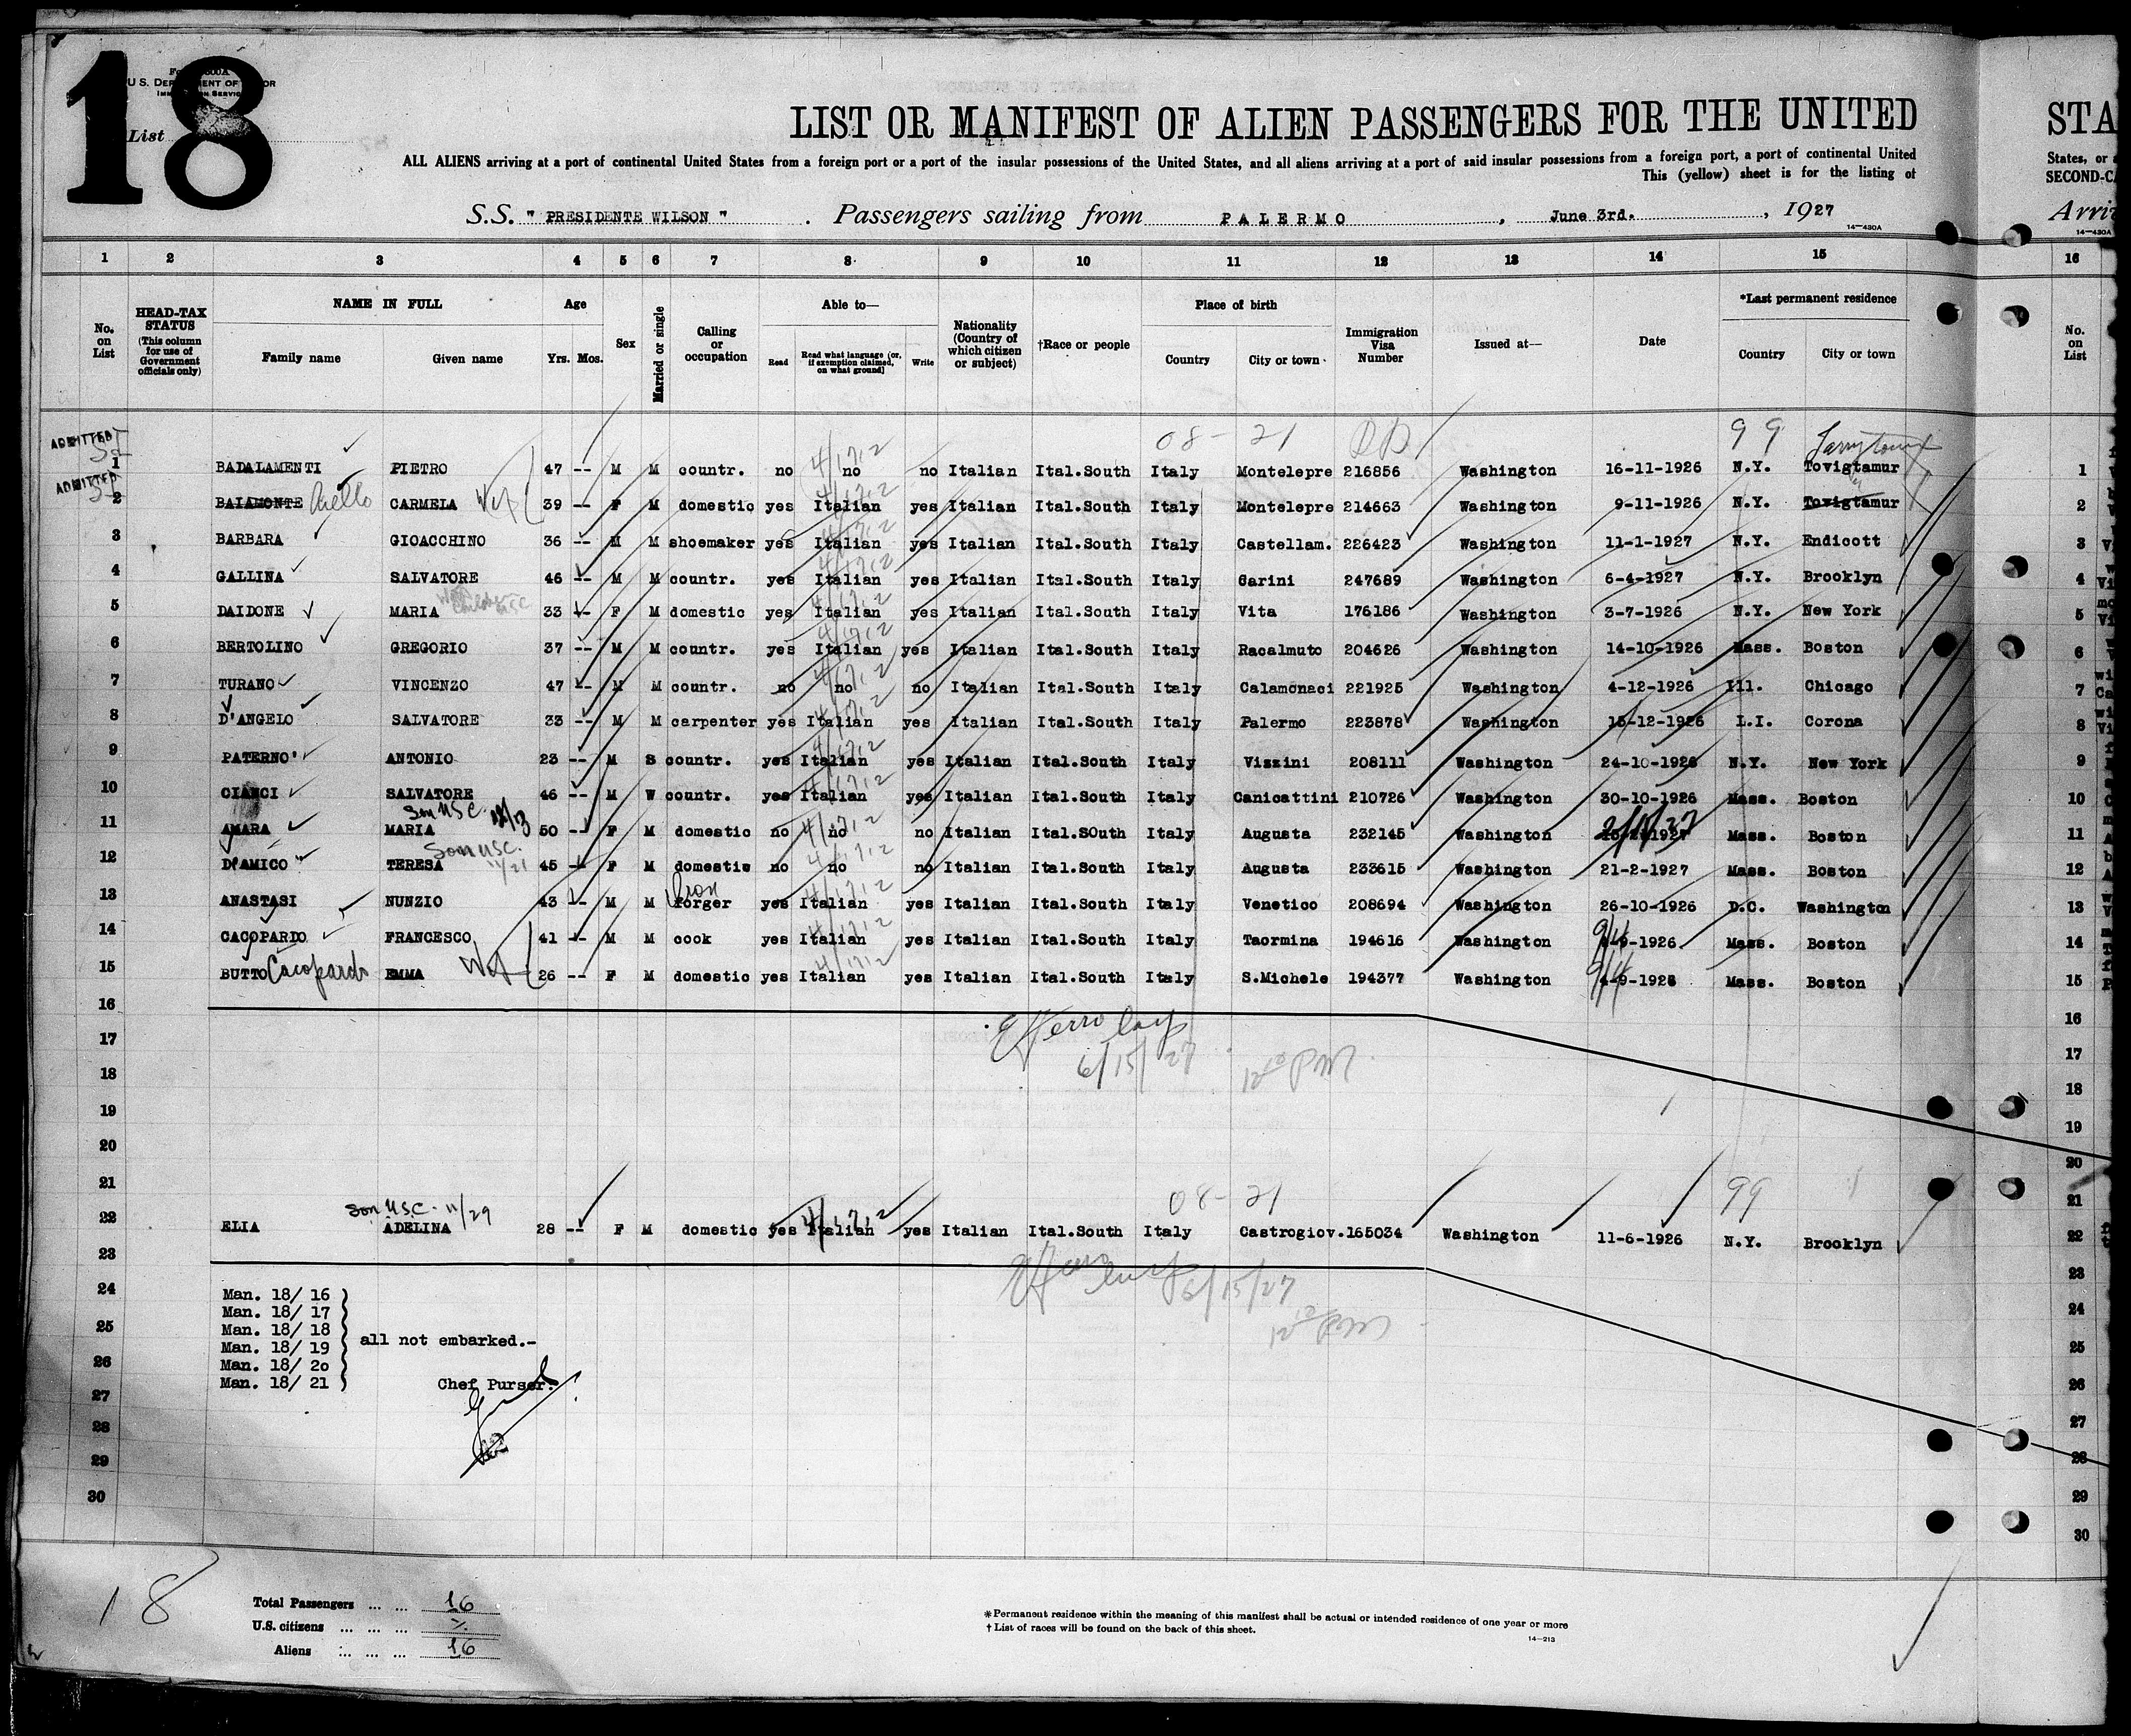 18
U S. DEP
List
LIST OR MANIFEST OF ALIEN PASSENGERS FOR THE UNITED
STA
ALL ALIENS arriving at a port of continental United States from a foreign port or a port of the insular possessions of the United States, and all aliens arriving at a port of said insular possessions from a foreign port, a port of continental United
States, or
This (yellow) sheet is for the listing of
SECOND-CA
S.S. " PRESIDENTE WILSON ". Passengers sailing from PALERMO, June 3rd., 1927
Arriv
14—430A
14—430A
1 2 3 4 5 6 7 8 9 10 11 12 13 14 15 16
No. on List
HEAD-TAX STATUS (This column for use of Government officials only)
NAME IN FULL
Family name Given name
Age
Yrs. Mos.
Sex
Married or single
Calling or occupation
Able to—
Read Read what language (or, if exemption claimed, on what ground) Write
Nationality (Country of which citizen or subject)
†Race or people
Place of birth
Country City or town
Immigration Visa Number
Issued at—
Date
*Last permanent residence
Country City or town
No. on List
08- 21 99 Tarrytown
ADMITTED
1 BADALAMENTI PIETRO 47 -- M M countr. no 4/17,2 no no Italian Ital.South Italy Montelepre 216856 Washington 16-11-1926 N.Y. Tovigtamur 1
ADMITTED
2 BAIAMONTE Aiello CARMELA Wf 39 -- F M domestic yes 4/17,2 Italian yes Italian Ital.South Italy Montelepre 214663 Washington 9-11-1926 N.Y. Tovigtamur 2
3 BARBARA GIOACCHINO 36 -- M M shoemaker yes 4/17,2 Italian yes Italian Ital.South Italy Castellam. 226423 Washington 11-1-1927 N.Y. Endicott 3
4 GALLINA SALVATORE 46 -- M M countr. yes 4/17,2 Italian yes Italian Ital.South Italy Carini 247689 Washington 6-4-1927 N.Y. Brooklyn 4
5 DAIDONE MARIA 33 -- F M domestic yes 4/17,2 Italian yes Italian Ital.South Italy Vita 176186 Washington 3-7-1926 N.Y. New York 5
6 BERTOLINO GREGORIO 37 -- M M countr. yes 4/17,2 Italian yes Italian Ital.South Italy Racalmuto 204626 Washington 14-10-1926 Mass. Boston 6
7 TURANO VINCENZO 47 -- M M countr. no 4/17,2 no no Italian Ital.South Italy Calamonaci 221925 Washington 4-12-1926 Ill. Chicago 7
8 D'ANGELO SALVATORE 33 -- M M carpenter yes 4/17,2 Italian yes Italian Ital.South Italy Palermo 223878 Washington 15-12-1926 L.I. Corona 8
9 PATERNO' ANTONIO 23 -- M S countr. yes 4/17,2 Italian yes Italian Ital.South Italy Vizzini 208111 Washington 24-10-1926 N.Y. New York 9
10 CIANCI SALVATORE 46 -- M W countr. yes 4/17,2 Italian yes Italian Ital.South Italy Canicattini 210726 Washington 30-10-1926 Mass. Boston 10
Son USC. 12/13
11 AMARA MARIA 50 -- F M domestic no 4/17,2 no no Italian Ital.SOuth Italy Augusta 232145 Washington 2/15/27 Mass. Boston 11
Son USC. 11/21
12 D'AMICO TERESA 45 -- F M domestic no 4/17,2 no no Italian Ital.South Italy Augusta 233615 Washington 21-2-1927 Mass. Boston 12
Iron
13 ANASTASI NUNZIO 43 -- M M forger yes 4/17,2 Italian yes Italian Ital.South Italy Venetico 208694 Washington 26-10-1926 D.C. Washington 13
14 CACOPARDO FRANCESCO 41 -- M M cook yes 4/17,2 Italian yes Italian Ital.South Italy Taormina 194616 Washington 9/4 -9-1926 Mass. Boston 14
15 BUTTO Cacopardo EMMA Wf 26 -- F M domestic yes 4/17,2 Italian yes Italian Ital.South Italy S.Michele 194377 Washington 9/4 4-9-1926 Mass. Boston 15
16 16
17 6/15/27 12 PM 17
18 18
19 19
20 20
21 08-21 99 21
Son USC. 11/29
22 ELIA ADELINA 28 -- F M domestic yes 4/17,2 Italian yes Italian Ital.South Italy Castrogiov. 165034 Washington 11-6-1926 N.Y. Brooklyn 22
23 6/15/27 23
12 PM
24 Man. 18/ 16 24
Man. 18/ 17
25 Man. 18/ 18 25
Man. 18/ 19 all not embarked.-
26 Man. 18/ 20 26
27 Man. 18/ 21 Chef Purser. 27
28 28
29 29
30 30
18
Total Passengers ... ... 16
U.S. citizens ... ... ...
Aliens ... ... ... 16
*Permanent residence within the meaning of this manifest shall be actual or intended residence of one year or more
† List of races will be found on the back of this sheet.
14—213